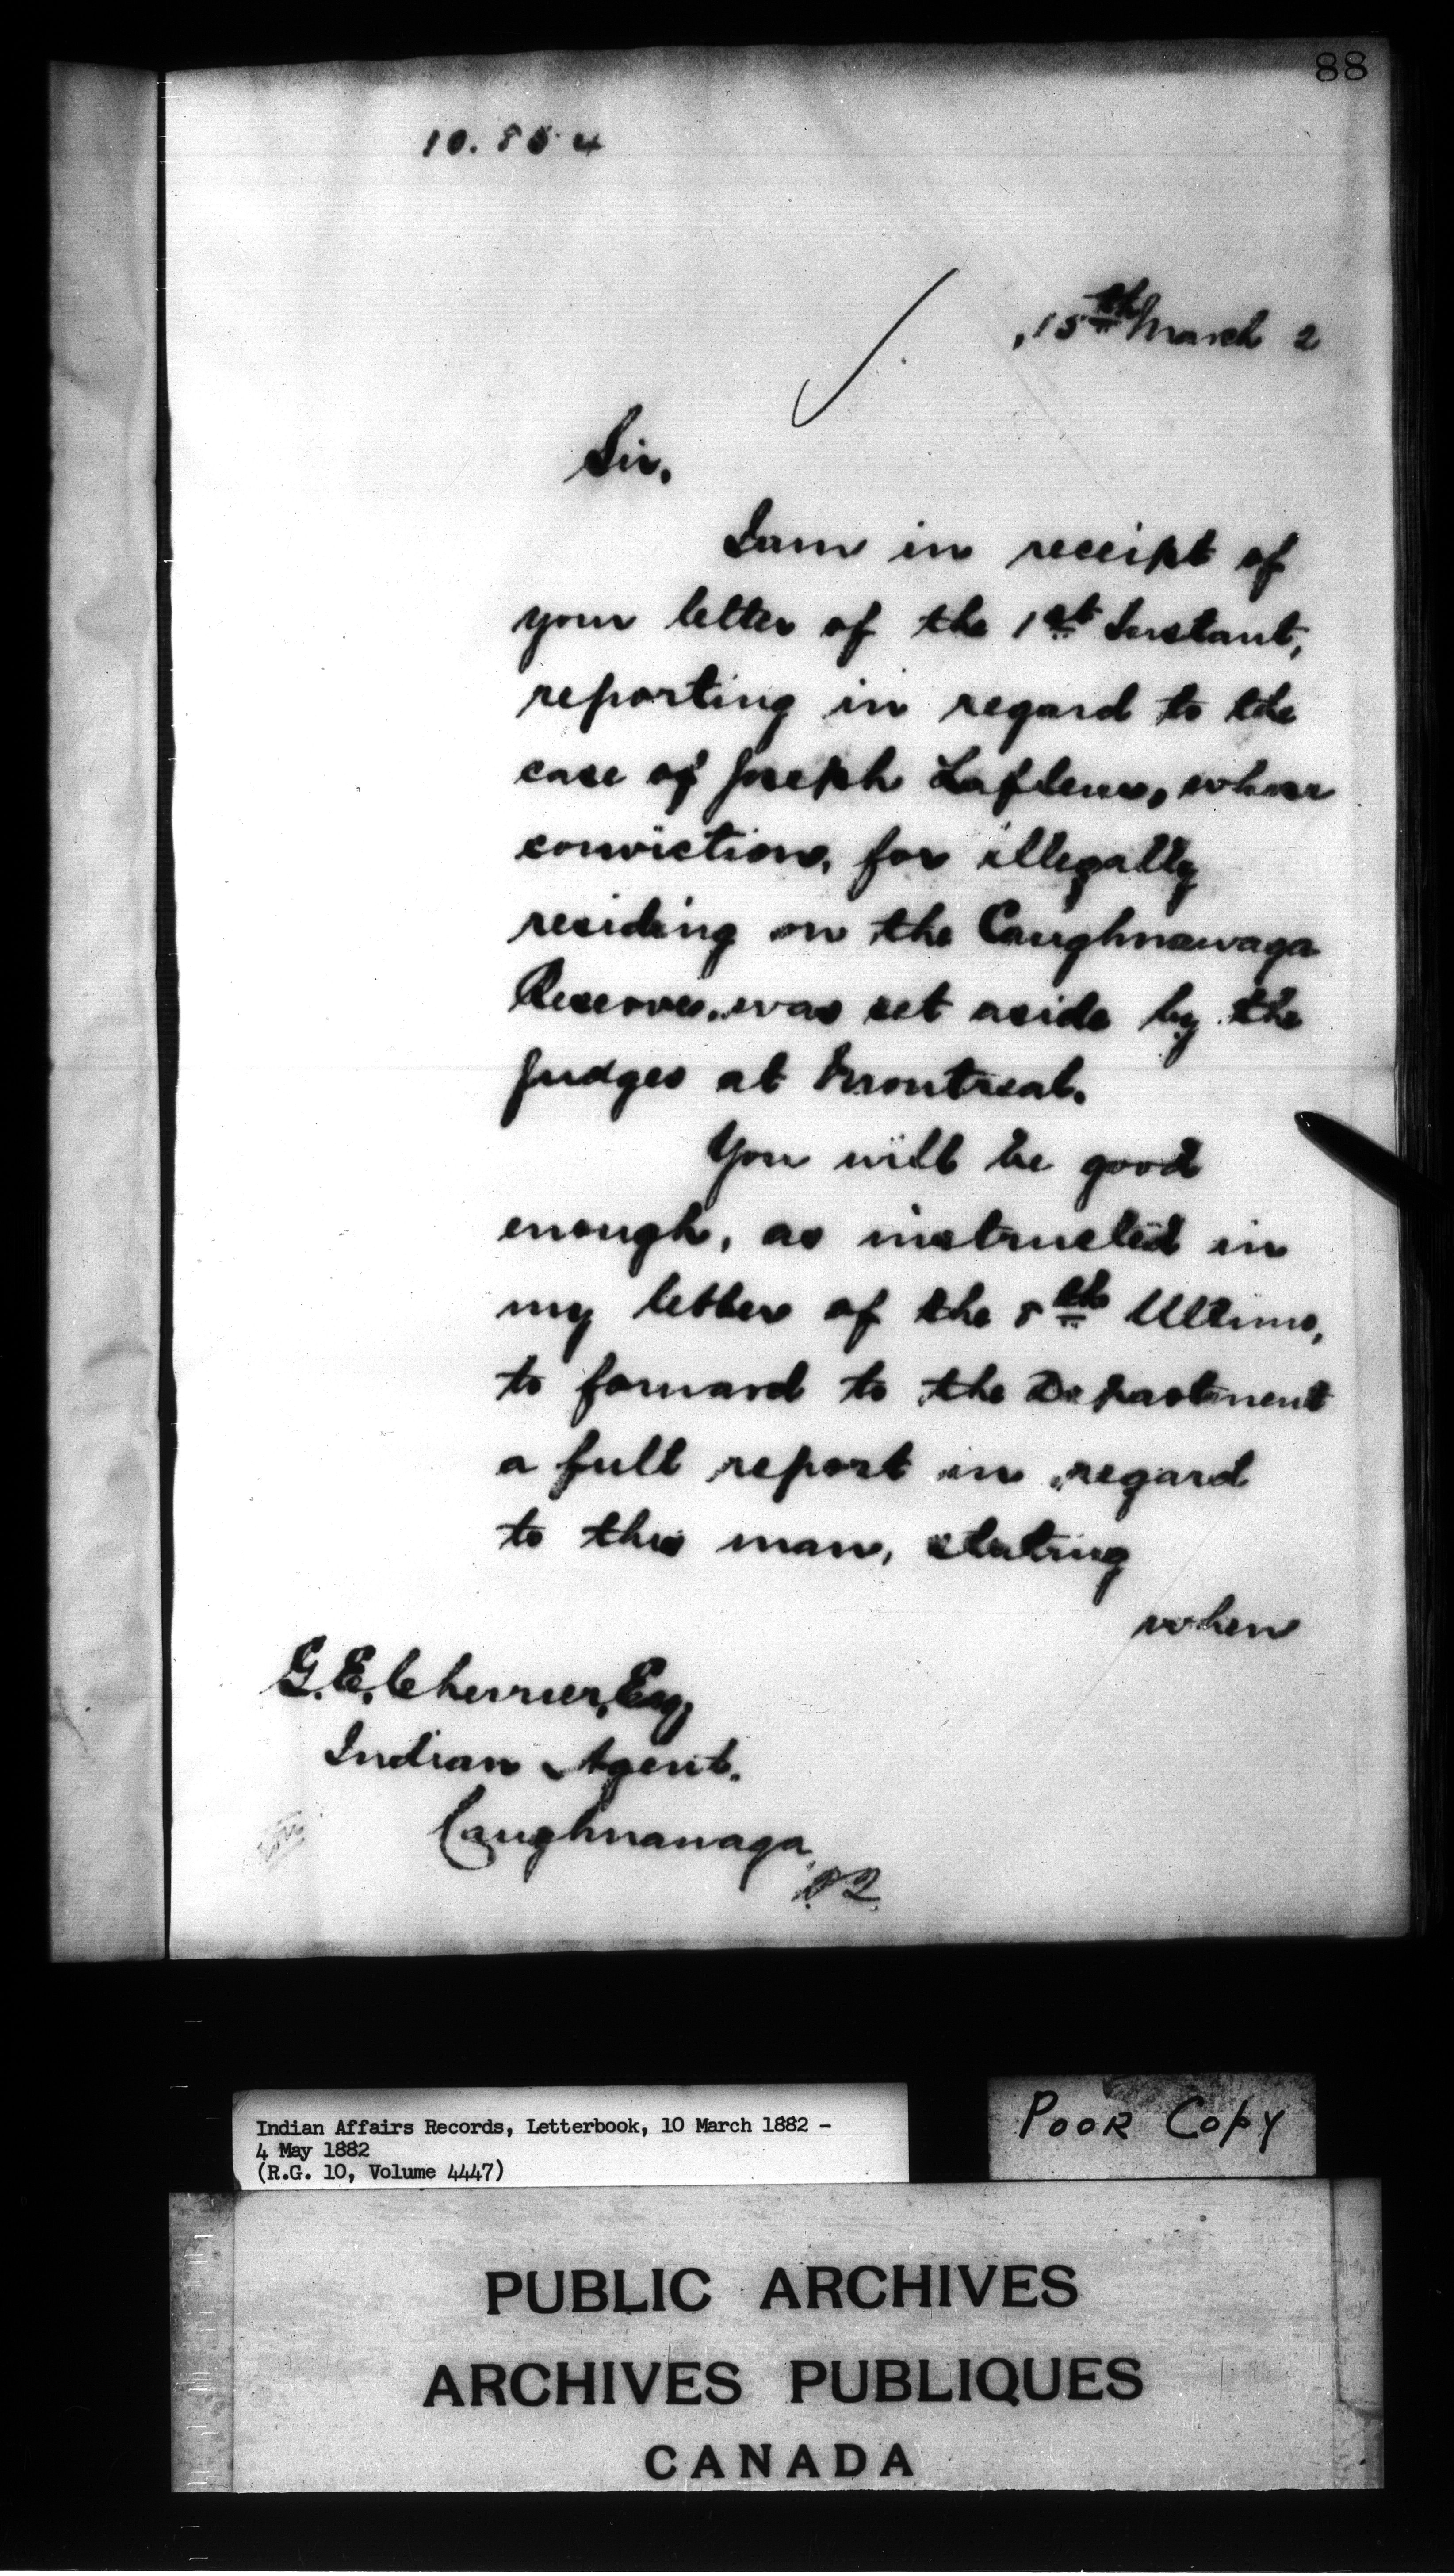 88
10.854
15th March 2
Sir,
I am in receipt of
your letter of the 1st Instant,
reporting in regard to the
case of Joseph Lafleur, whose
conviction, for illegally
residing on the Caughnawaga
Reserve, was set aside by the
Judges at Montreal.
You will be good
enough, as instructed in
my letter of the 8th Ultimo,
to forward to the Department
a full report in regard
to this man, stating
when
G. E. Cherrier, Esq,
Indian Agent.
Caughnawaga
P.Q.
Indian Affairs Records, Letterbook, 10 March 1882 -
4 May 1882
(R.G. 10, Volume 4447)
POOR COPY
PUBLIC ARCHIVES
ARCHIVES PUBLIQUES
CANADA